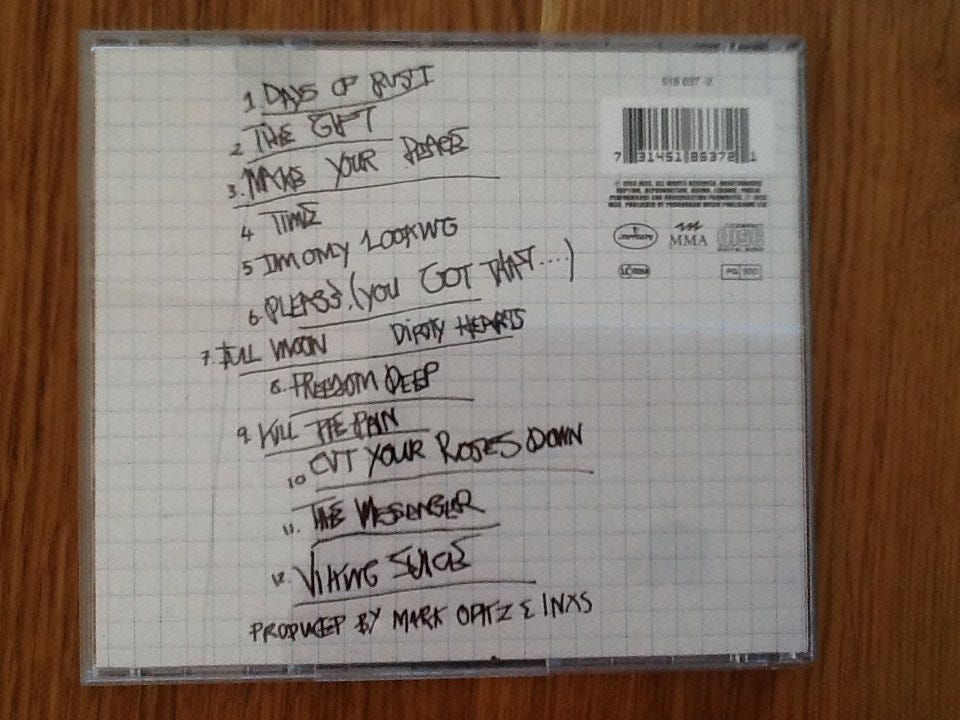 1 DAYS OF RUST
2 THE GIFT
3. MAKE YOUR PEACE
4 TIME
5 IM ONLY LOOKING
6. PLEASE. (YOU GOT THAT....)
7. FULL MOON DIRTY HEARTS
8. FREEDOM DEEP
9. KILL THE PAIN
10 CUT YOUR ROSES DOWN
11. THE MESSENGER
12. VIKING JUICE
PRODUCED BY MARK OPITZ & INXS
518 637-2
7 31451 86372 1
mercury
MMA
COMPACT
disc
DIGITAL AUDIO
LC 0268
PG 900